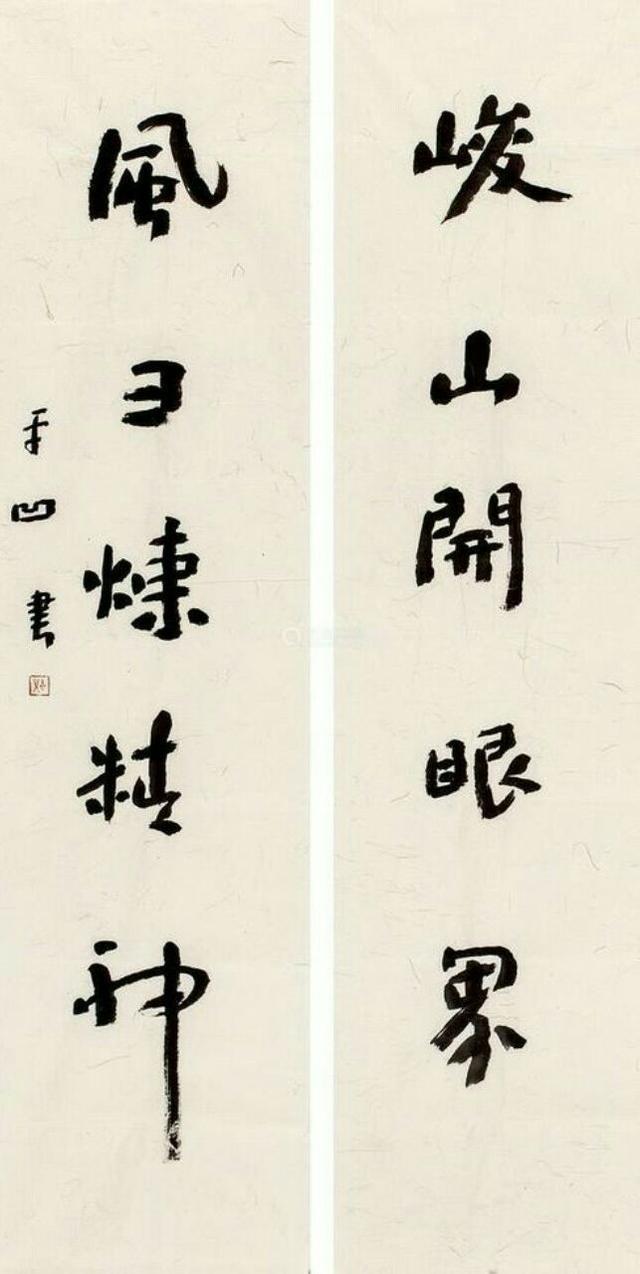 峻山開眼界
風彐煉精神
平凹書